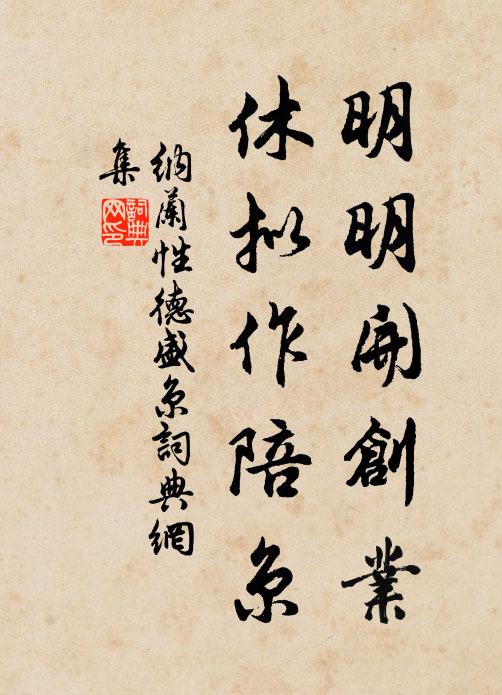 明明開創業
休拟作陪京
納蘭性德盛京詞典網
集
詞典網印